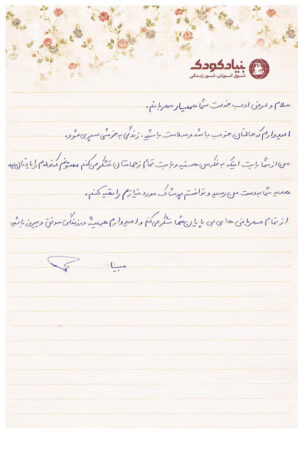 بنیاد کودک
شور آموزش، شور زندگی
سلام و عرض ادب خدمت شما همیار مهربانم.
امیدوارم که حالتان خوب باشد و سلامت باشید. زندگی به خوشی سپری شود.
من از شما بابت اینکه به فکر من هستید و بابت تمام زحماتتان تشکر می‌کنم ممنونم که تولدم را یادتان بود
هدیه شما به دست من رسید و توانستم پوشاک مورد نیازم را تهیه کنم.
از تمام مهربانی های بی پایان شما تشکر می‌کنم و امیدوارم همیشه در زندگی موفق و پیروز باشید.
مبینا